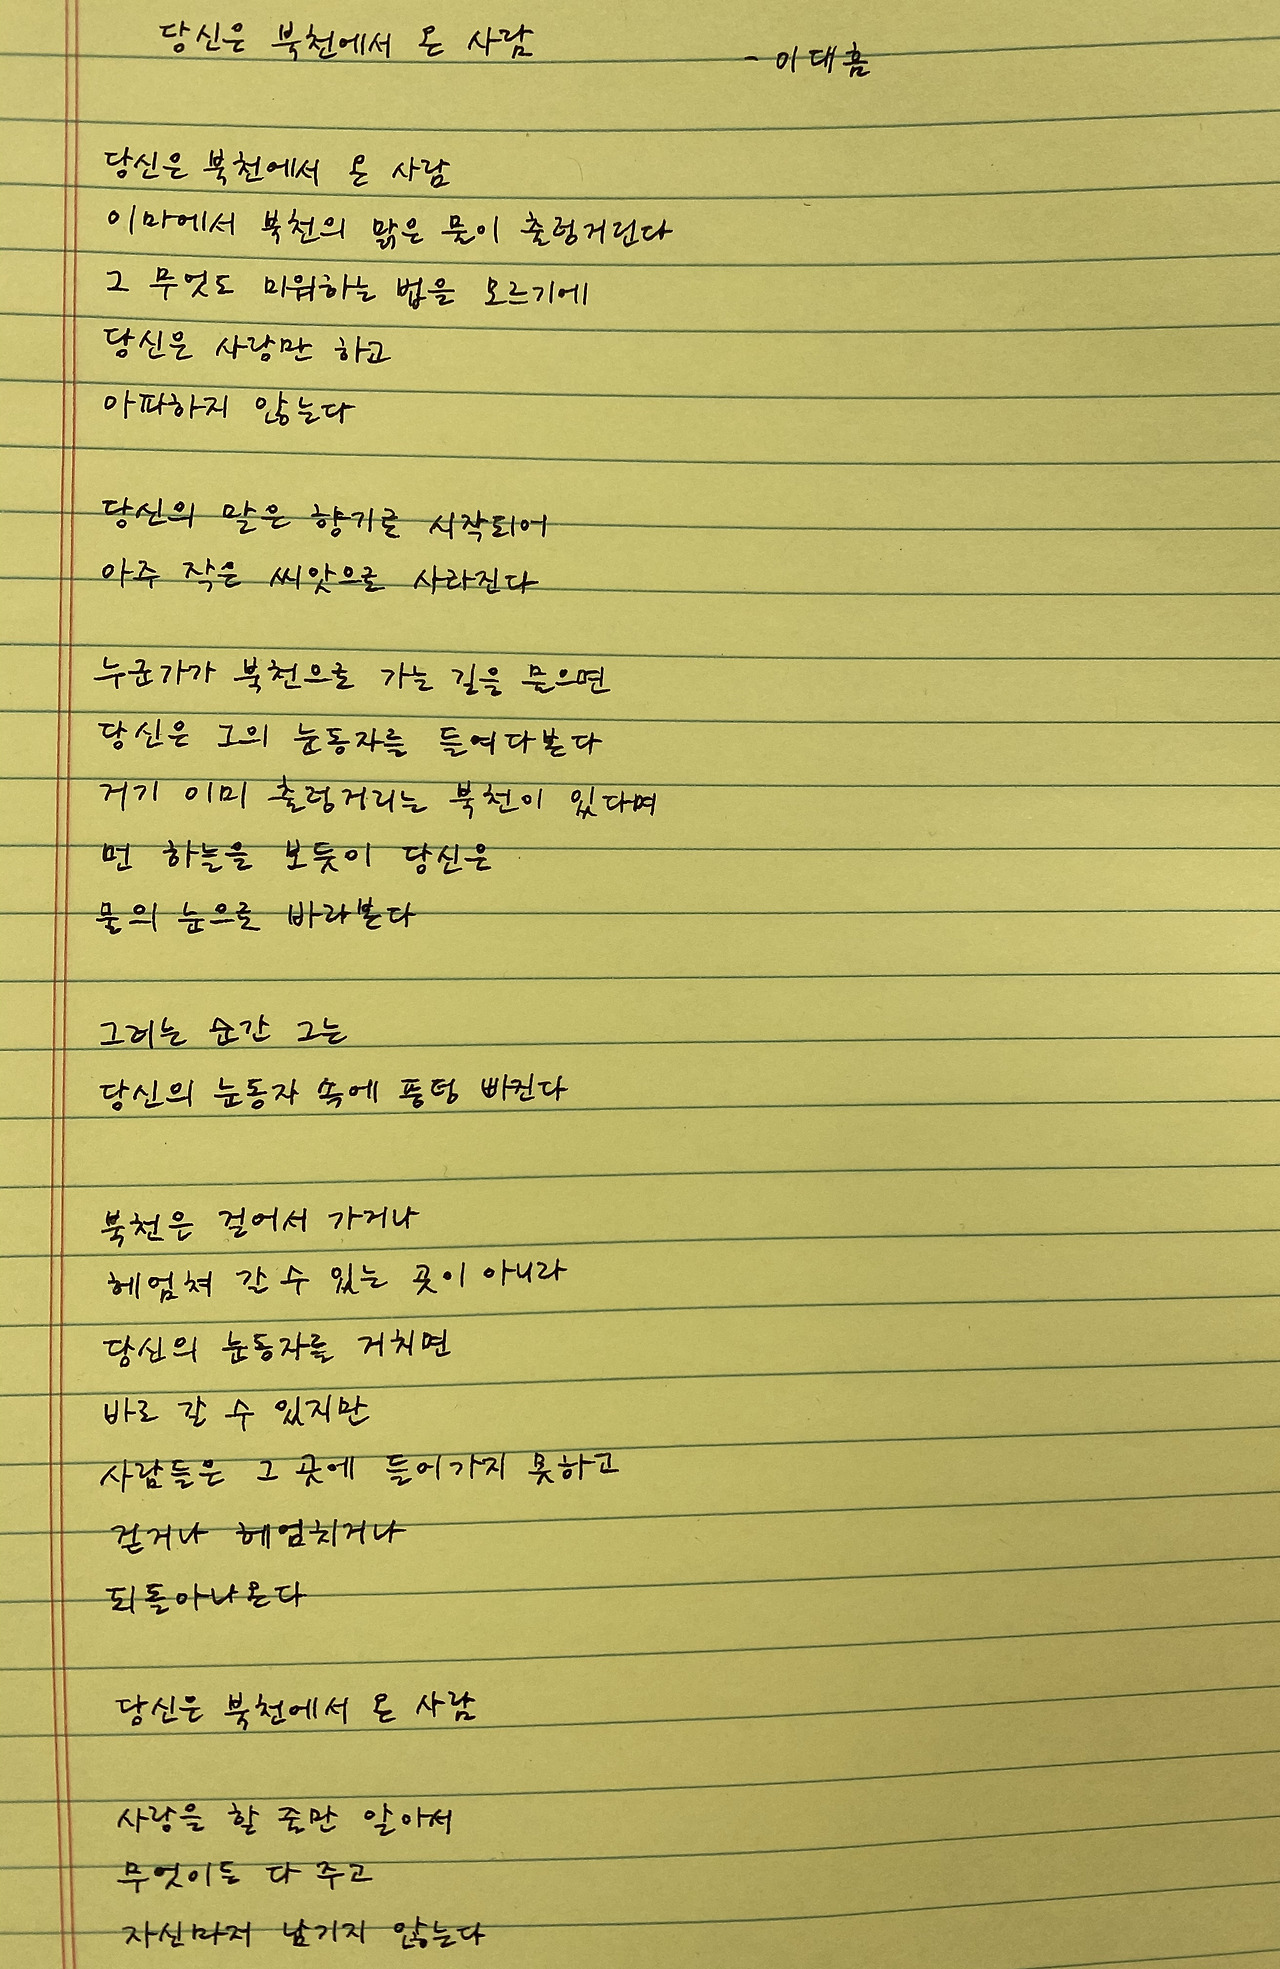 당신은 북천에서 온 사람
- 이대흠
당신은 북천에서 온 사람
이마에서 북천의 맑은 물이 출렁거린다
그 무엇도 미워하는 법을 모르기에
당신은 사랑만 하고
아파하지 않는다
당신의 말은 향기로 시작되어
아주 작은 씨앗으로 사라진다
누군가가 북천으로 가는 길을 물으면
당신은 그의 눈동자를 들여다본다
거기 이미 출렁거리는 북천이 있다며
먼 하늘을 보듯이 당신은
물의 눈으로 바라본다
그러는 순간 그는
당신의 눈동자 속에 풍덩 빠진다
북천은 걸어서 가거나
헤엄쳐 갈 수 있는 곳이 아니라
당신의 눈동자를 거치면
바로 갈 수 있지만
사람들은 그 곳에 들어가지 못하고
걷거나 헤엄치거나
되돌아나온다
당신은 북천에서 온 사람
사랑을 할 줄만 알아서
무엇이든 다 주고
자신마저 남기지 않는다